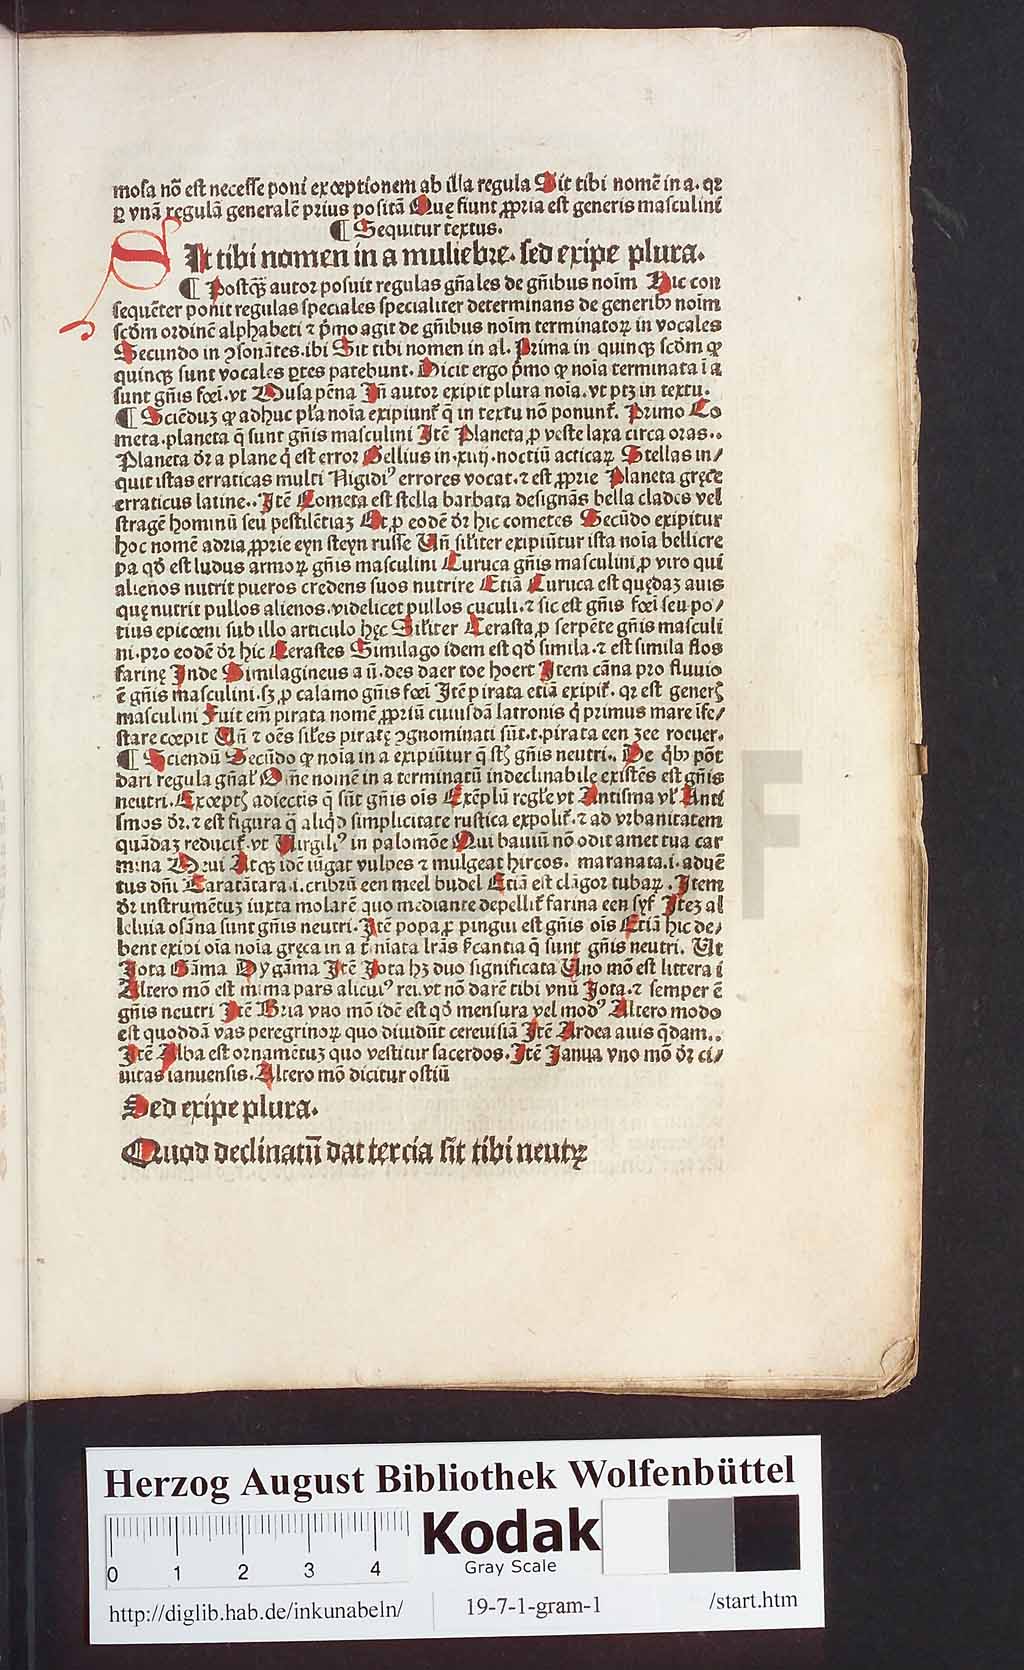 mosa nō est necesse poni exceptionem ab illa regula Sit tibi nomē in a. qꝛ
ꝑ vnā regulā generalē prius positā Quę fiunt ꝓpria est generis masculinī
¶ Sequitur textus.
SIt tibi nomen in a muliebre. sed exipe plura.
¶ Postqꝫ autor posuit regulas gñales de gñibus noīm Hic con
sequēter ponit regulas speciales specialiter determinans de generibꝰ noīm
scōm ordinē alphabeti ⁊ p̄mo agit de gñibus noīm terminatoꝝ in vocales
Secundo in ↄsonātes. ibi Sit tibi nomen in al. Prima in quinqꝫ scōm ꝙ
quinqꝫ sunt vocales ꝑtes patebunt. Dicit ergo p̄mo ꝙ noīa terminata ī a
sunt gñis fōeī. vt Musa pēna Iñ autor exipit plura noīa. vt ptꝫ in textu.
¶ Sciēduꝫ ꝙ adhuc pl̄a noīa exipiunt᷑ q̄ in textu nō ponunt᷑. Primo Co
meta. planeta q̄ sunt gñis masculini Itē Planeta ꝓ veste laxa circa oras..
Planeta dr̄ a plane qđ est error Gellius in .xiiij. noctiū acticaꝝ Stellas in/
quit istas erraticas multi Nigidiꝰ errores vocat. ⁊ est ꝓprie Planeta gręce
erraticus latine.. Itē Cometa est stella barbata designās bella clades vel
stragē hominū seu pestilētiaꝫ Et ꝓ eodē dr̄ hic cometes Secūdo exipitur
hoc nomē adria ꝓprie eyn steyn russe Vñ sil̄iter exipiūtur ista noīa bellicre
pa qđ est ludus armoꝝ gñis masculini Curuca gñis masculini ꝓ viro qui
alienos nutrit pueros credens suos nutrire Etiā Curuca est quędaꝫ auis
quę nutrit pullos alienos. videlicet pullos cuculi. ⁊ sic est gñis fōeī seu po/
tius epicœni sub illo articulo hęc Sil̄iter Cerasta ꝓ serpēte gñis masculi
ni. pro eodē dr̄ hic Cerastes Similago idem est qđ simila. ⁊ est simila flos
farinę Inde Similagineus a ū. des daer toe hoert Item cāna pro fluuio
ē gñis masculini. sꝫ ꝓ calamo gñis fōeī Itē pirata etiā exipit᷑. qꝛ est generꝭ
masculini Fuit em̄ pirata nomē ꝓpriū cuiusdā latronis qͥ primus mare īfe/
stare cœpit Vñ ⁊ oēs sil̄es piratę ↄgnominati sūt. t. pirata een zee rouer.
¶ Sciendū Secūdo ꝙ noīa in a exipiūtur q̄ sꝉ gñis neutri.. De qͥbꝰ pōt
dari regula gñal̄ Oēne nomē in a terminatū indeclinabile existēs est gñis
neutri. Exceptꝭ adiectis q̄ sūt gñis oīs Exēplū regl̄e vt Antisma vl̄ Anti
smos dr̄. ⁊ est figura q̄ aliqͣ simplicitate rustica expolit᷑. ⁊ ad vrbanitatem
quādaꝫ reducit᷑. vt Virgiliꝰ in palomōe Qui bauiū nō odit amet tua car
mina Meui Atqꝫ idē iūgat vulpes ⁊ mulgeat hircos. maranata. i. aduē
tus dñi Taratātara. i. cribrū een meel budel Etiā est clāgor tubaꝝ. Item
dr̄ instrumētuꝫ iuxta molarē quo mediante depellit᷑ farina een syf Iteꝫ al
leluia osāna sunt gñis neutri. Itē popa ꝓ pingui est gñis oīs Etiā hic de/
bent exipi oīa noīa gręca in a t̄mīata lrās
Iota Gāma Dygāma Itē Iota hꝫ duo significata Vno mō est littera i
Altero mō est minima pars alicuiꝰ rei. vt nō darē tibi vnū Iota. ⁊ semper ē
gñis neutri Itē Bria vno mō idē est qđ mensura vel modꝰ Altero modo
est quoddā vas peregrinoꝝ quo diuidūt cereuisiā Itē Ardea auis q̄dam..
Itē Alba est ornamētuꝫ quo vestitur sacerdos. Itē Ianua vno mō dr̄ ci/
uitas ianuensis. Altero mō dicitur ostiū
Sed exipe plura.
Quod declinatū dat tercia sit tibi neutꝝ
Herzog August Bibliothek Wolfenbüttel
0 1 2 3 4
Kodak
Gray Scale
http://diglib.hab.de/inkunabeln/ 19-7-1-gram-1 /start.htm